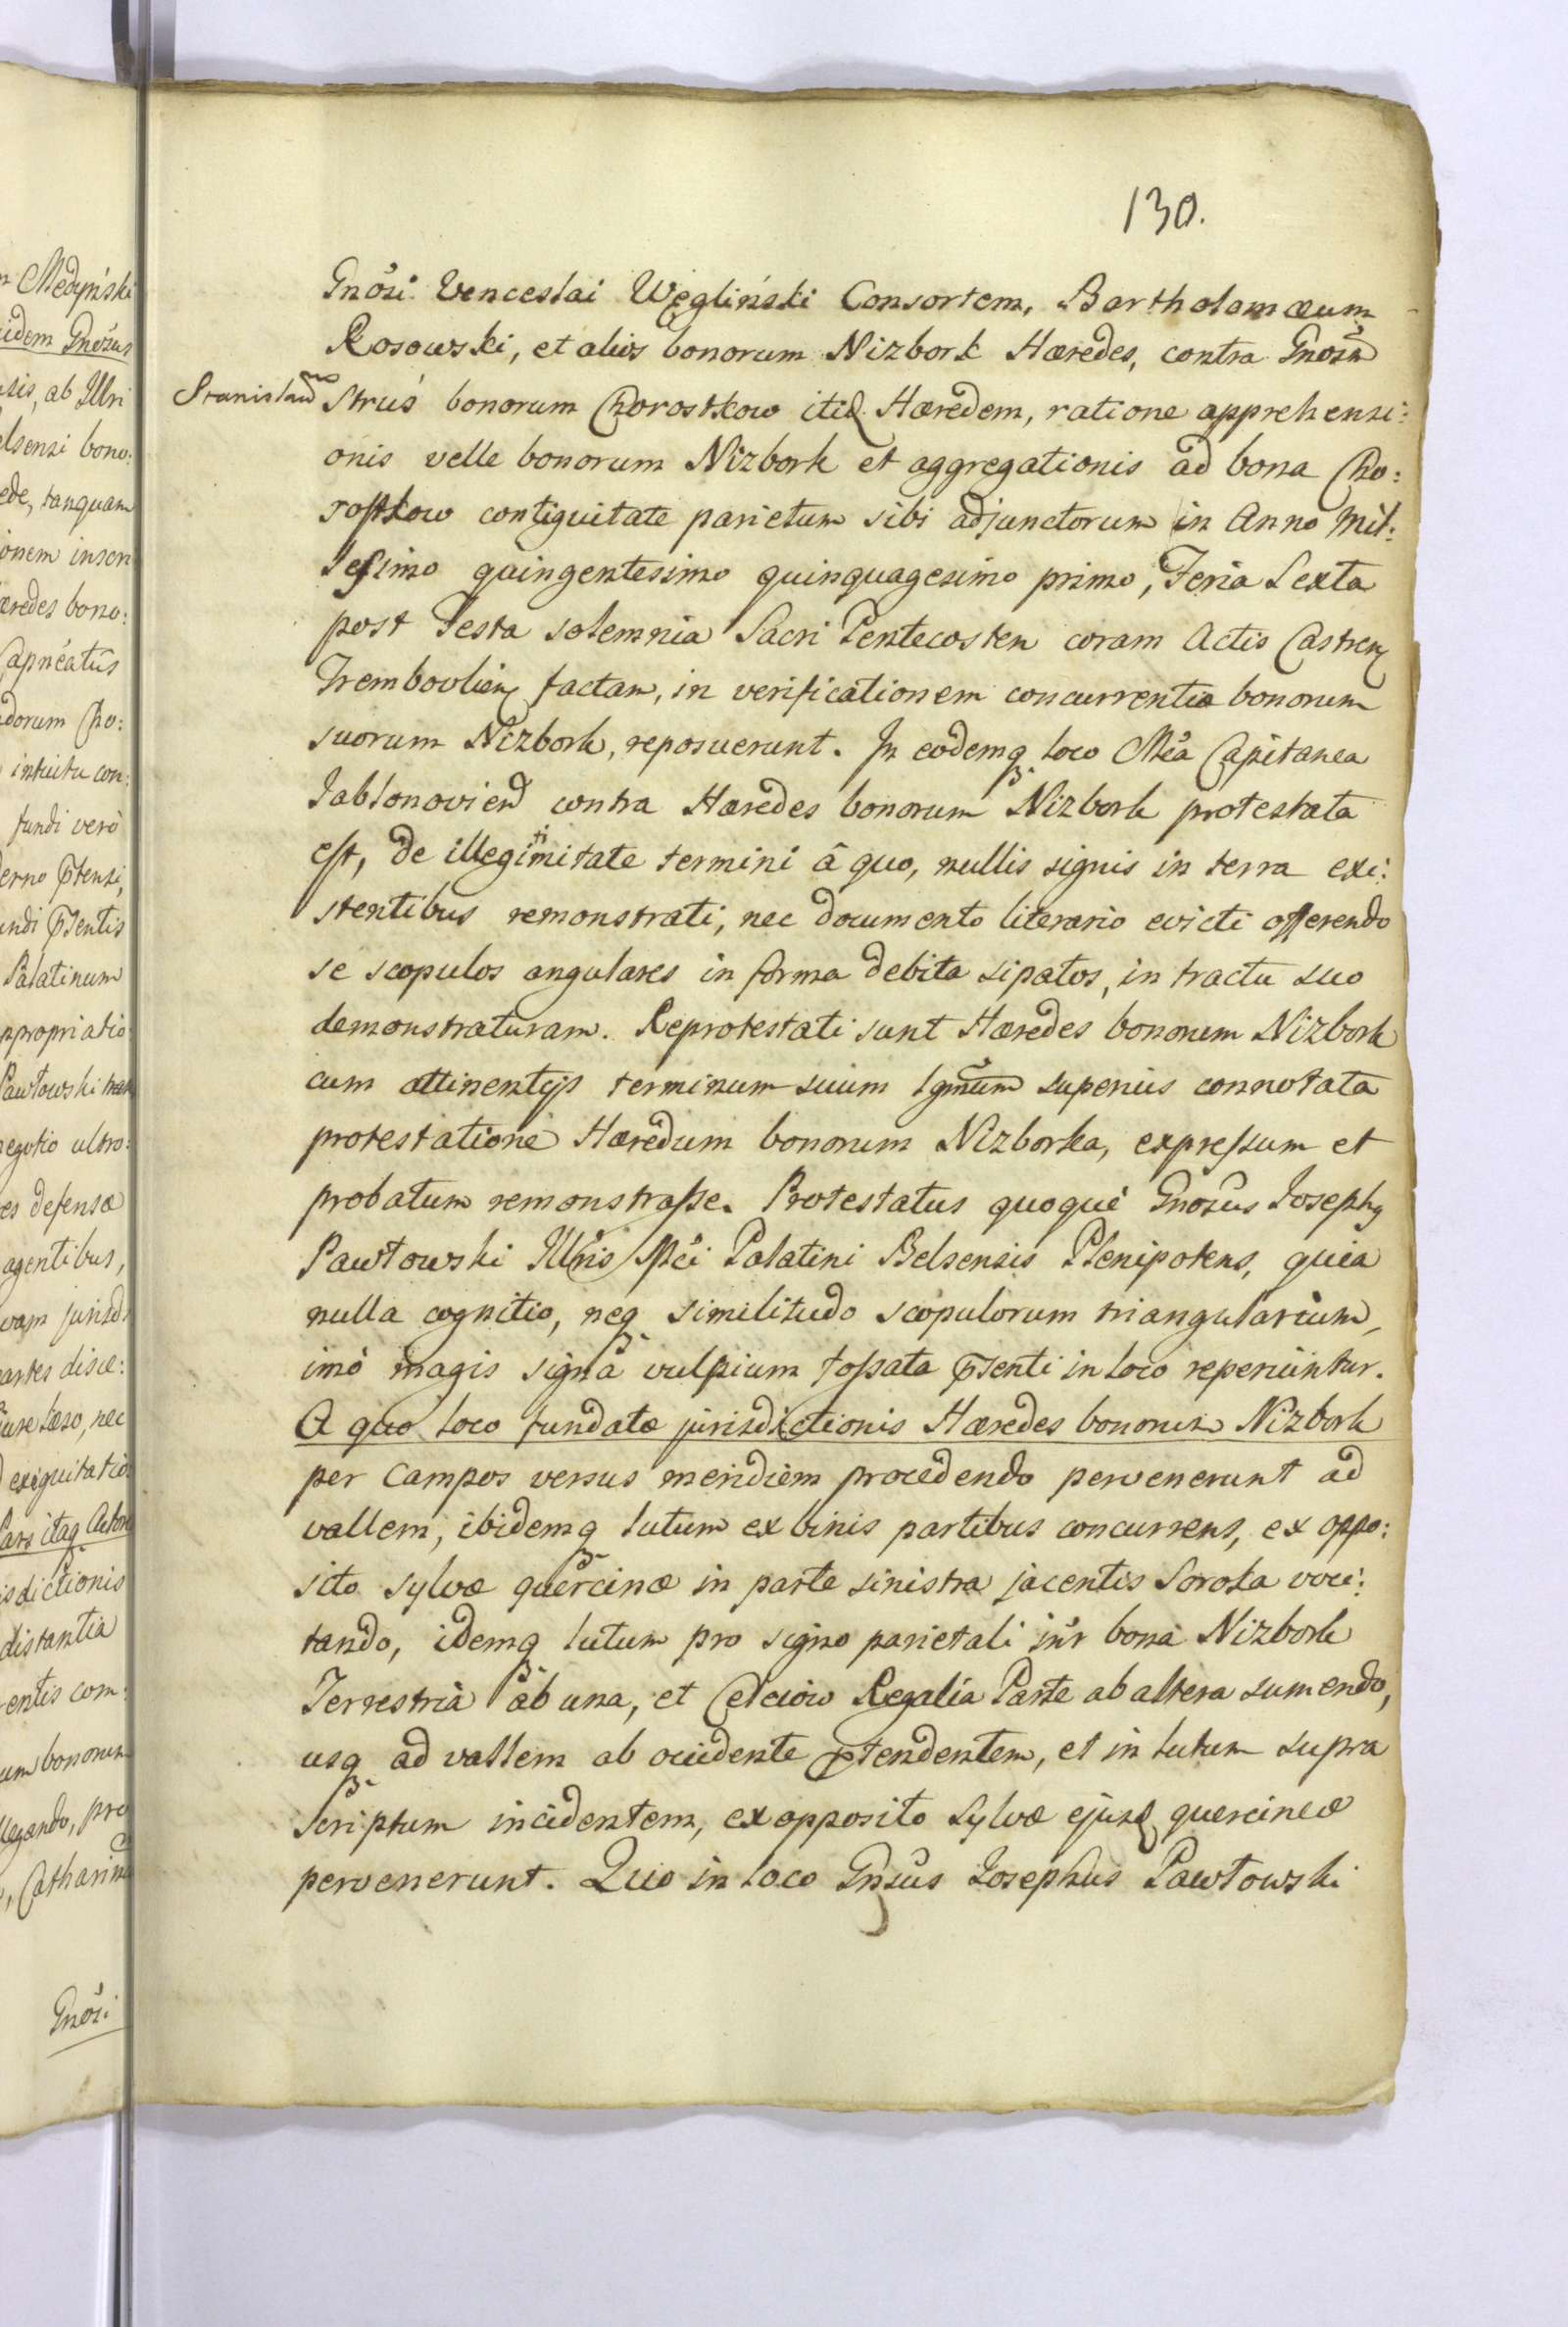 130.
Gnősi Venceslai Węgliński Consortem, Bartholomæum
Rosowski, et alios bonorum Nizbork Hæredes, contra Gnosũ
Stanislaũ Struś bonorum Chorostkow itid. Hæredem, ratione apprehensi:
onis velle bonorum Nizbork et aggregationis ad bona Cho:
rostkow contiguitate parietum sibi adjunctorum in Anno Mil:
lesimo quingentesimo quinquagesimo primo, Feria Sexta
post Festa solemnia Sacri Pentecosten coram Actis Castren
Trembovlien factam, in verificationem concurrentiæ bonorum
suorum Nizbork, reposuerunt. In eodemq loco Mča Capitanea
Jablonovien contra Hæredes bonorum Nizbork protestata
est, de illegitimitate termini â quo, nullis signis in terra exi:
stentibus remonstrati, nec documento literario evicti offerendo
se scopulos angulares in forma debita sipatos, in tractu suo
demonstraturam. Reprotestati sunt Hæredes bonorum Nizbork
cum attinentijs terminum suum lgmũm superius connotata
protestatione Hæredum bonorum Nizborka, expressum et
probatum remonstrasse. Protestatus quoquè Gnosus Josephg
Pawłowski Illris Mči Palatini Belsensis Plenipotens, quia
nulla cognitio, neq similitudo scopulorum triangularium,
imò magis signa vulpium fossata pſenti in loco reperiuntur.
A quo loco fundatæ jurisdictionis Hæredes bonorum Nizbork
per Campos versus meridiem procedendo pervenerunt ad
vallem, ibidemq lutum ex binis partibus concurrens, ex oppo:
sito sylvæ quercinæ in parte sinistra jacentis Soroka voci:
tando, idemq lutum pro signo parietali inr bona Nizbork
Terrestria ab una, et Celeiow Regalia Parte ab altera sumendo,
usq ad vallem ab occidente ptendentem, et in lutum supra
scriptum incidentem, ex opposito sylvæ ejusd quercineæ
pervenerunt. Quo in loco Gnsus Josephus Pawłowski
Medyński
idem Gnősus
ab Illri
elsensi bono:
ede, tanquam
ionem inscri
æredes bono:
dorum Cho:
intuitu con:
fundi verò
erno ptensi,
undi pſentis
Palatinum
ppropriatio
Pawłowski
negotio ultro:
es defensæ
agentibus,
vam jurisd
artes disce:
iure læso, nec
exiguitatio
Pars itaq Acto
isdictionis
distantia
entis com:
um bonorum
llegando, pro
, Catharinæ
Gnősi